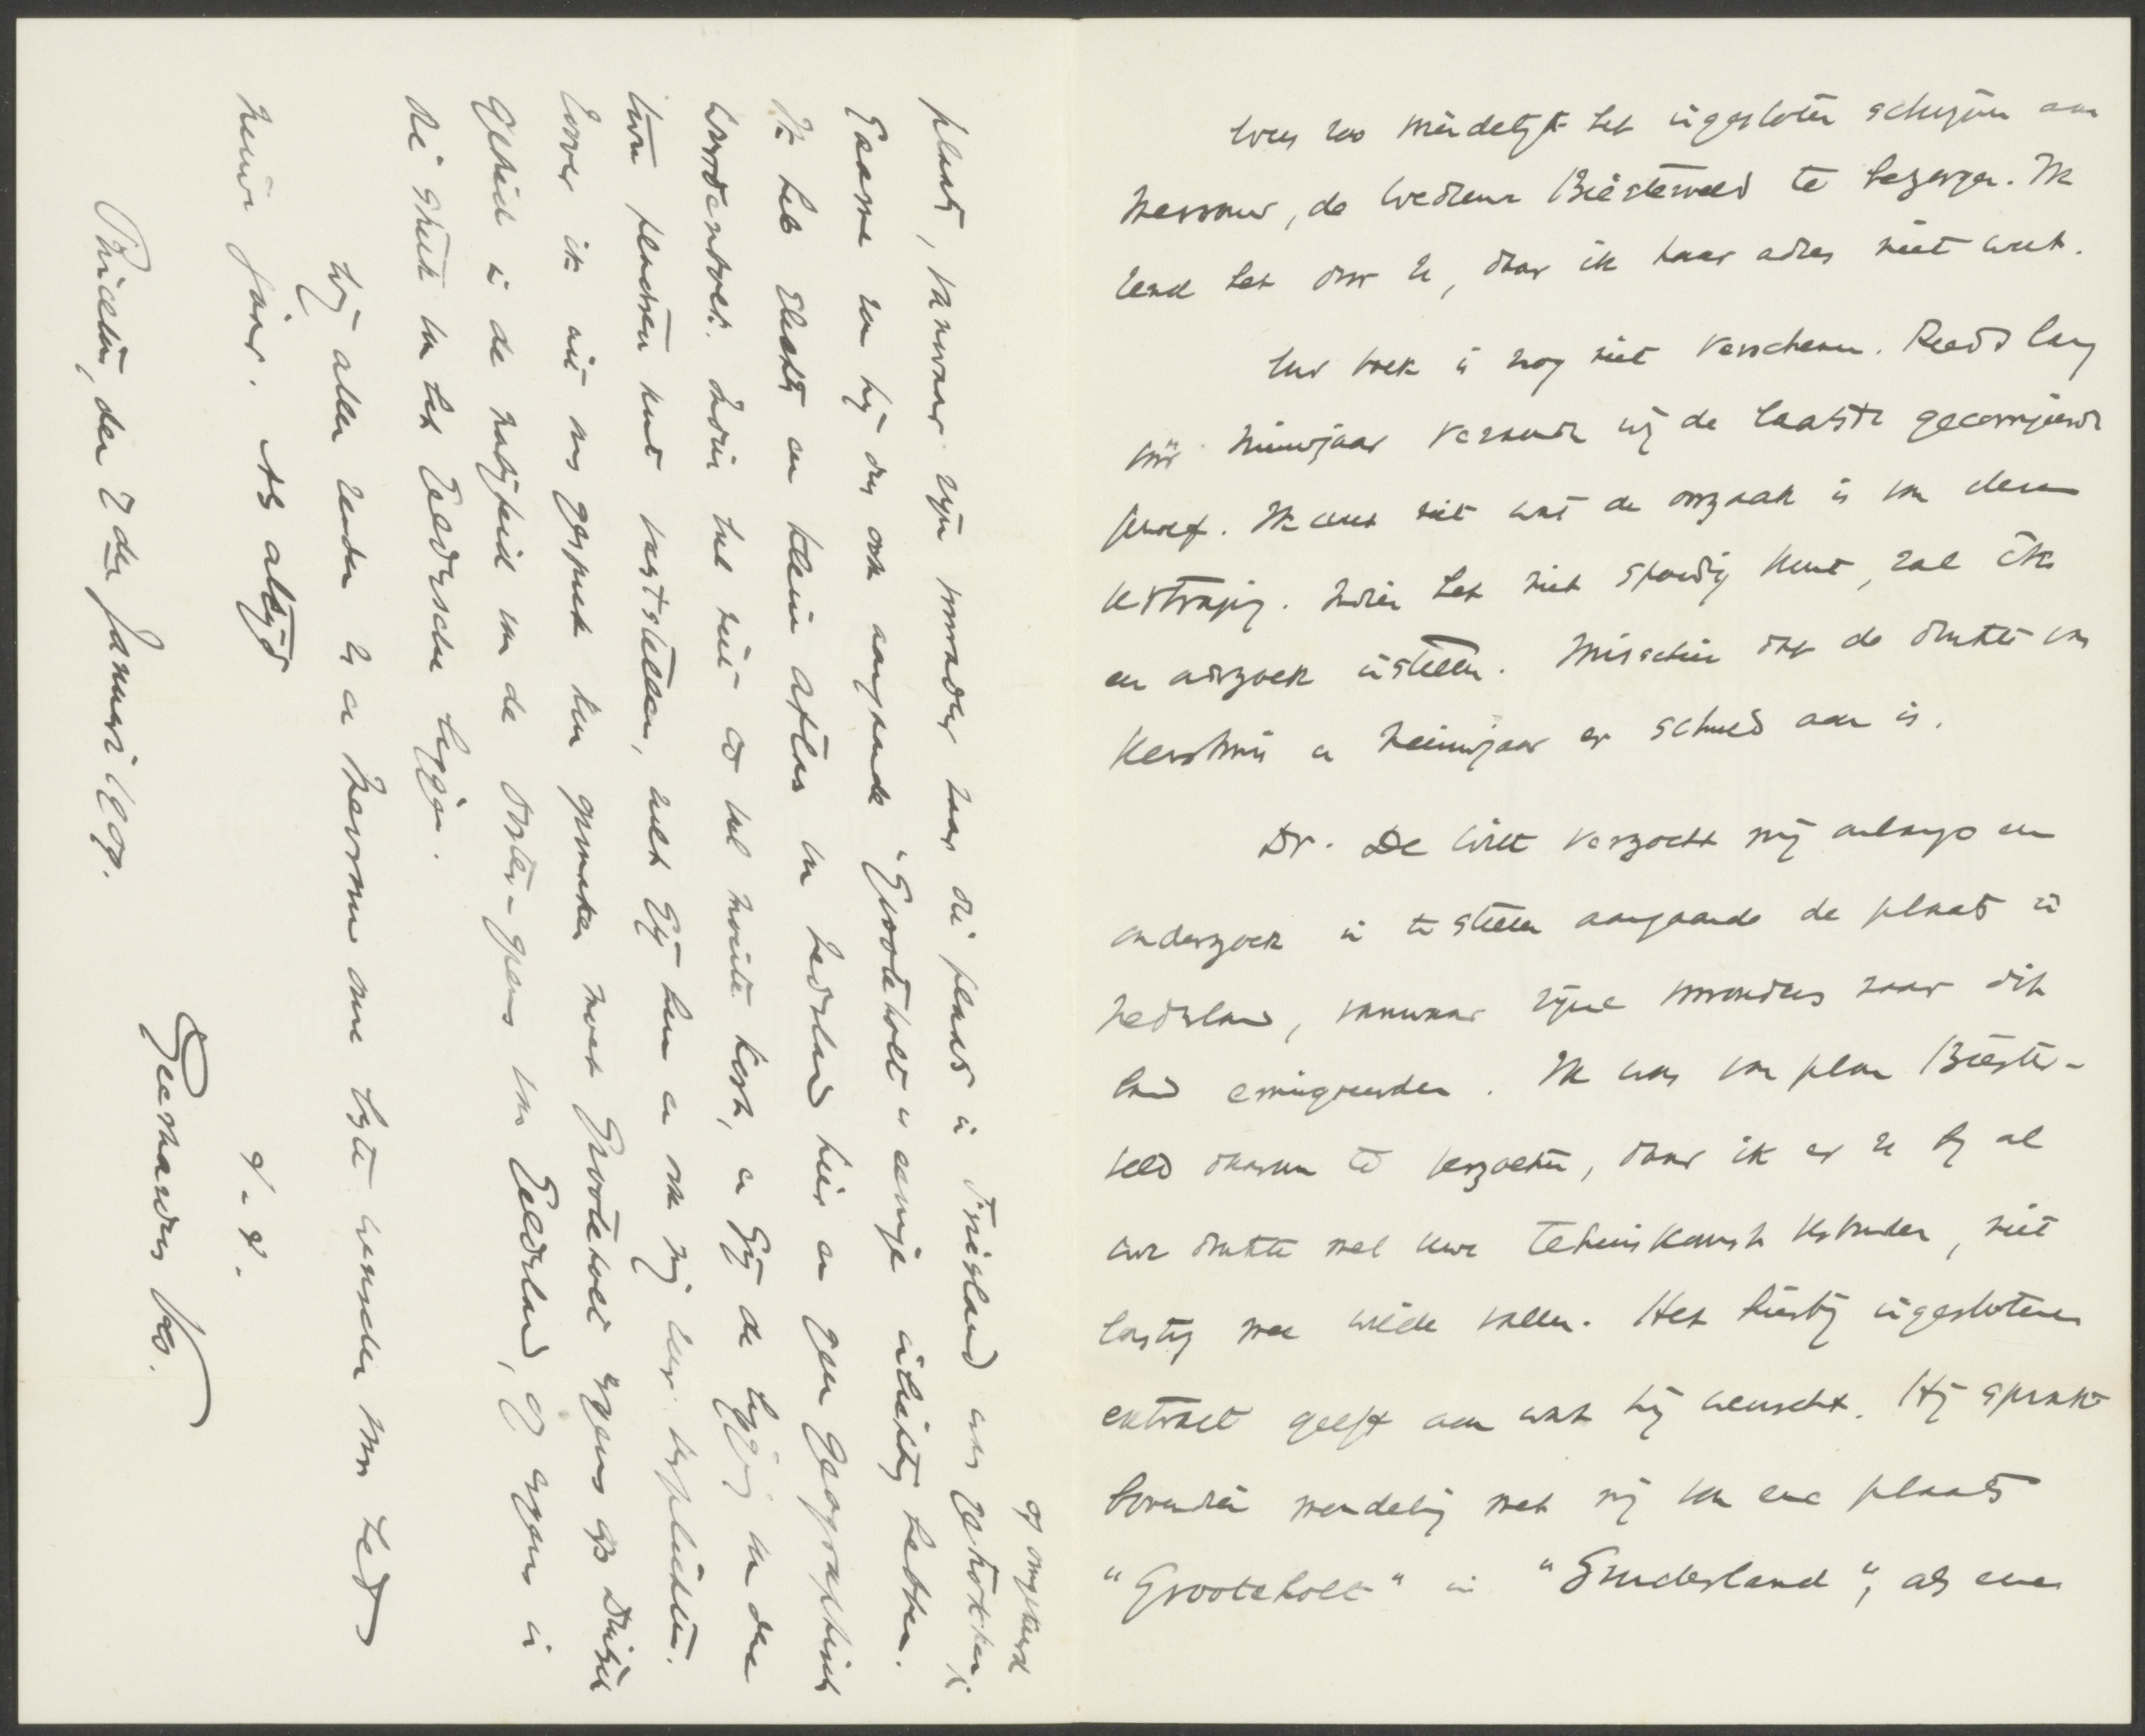 Wees zoo vriendelijk het ingesloten schrijven aan
Mevrouw, de Weduwe Biesterveld te bezorgen. Ik
zend het door U, daar ik haar adres niet weet.
Uw boek is nog niet verschenen. Reeds lang
vóór Nieuwjaar verzond wij de laatste gecorrigeerde
proef. Ik weet niet wat de oorzaak is van deze
vertraging. Indien het niet spoedig komt, zal ik
een onderzoek instellen. Misschien dat de drukte van
Kerstmis en Nieuwjaar er schuld aan is.
Dr. De Witt verzocht mij onlangs een
onderzoek in te stellen aangaande de plaats in
Nederland, vanwaar zijne voorouders naar dit
land emigreerden. Ik was van plan Biester-
veld daarom te verzoeken, daar ik er U bij al
uwe drukte met uwe tehuiskomst verbonden, niet
lastig mee wilde vallen. Het hierbij ingeslotene
extract geeft aan wat hij wenscht. Hij sprak
bovendien mondeling met mij van eene plaats
"Grooteholt" in "Gruderland", als eene
plaats, vanwaar zijn voorouders naar die plaats in Friesland was getrokken;
of omgekeerd
Gaarne zou hij dus ook aangaande "Grooteholt" eenige inlichting hebben.
Ik heb slechts een kleine atlas van Nederland hier en geen Geographisch
Woordenboek. Indien het niet al te veel moeite kost, en Gij de ligging van deze
twee plaatsen kunt vaststellen, zult Gij hem en ook mij zeer verplichten.
Zoover ik uit ons gesprek kon opmaken moet Grooteholt ergens op Duitsch
gebied in de nabijheid van de Ooster-grens van Gelderland, of ergens in
die streek van het Geldersche liggen.
Wij allen zenden U en Mevrouw onze beste wenschen voor het
nieuwe jaar. Als altijd
t. t.
Geerhardus Vos.
Princeton, den 7den Januari 1909.